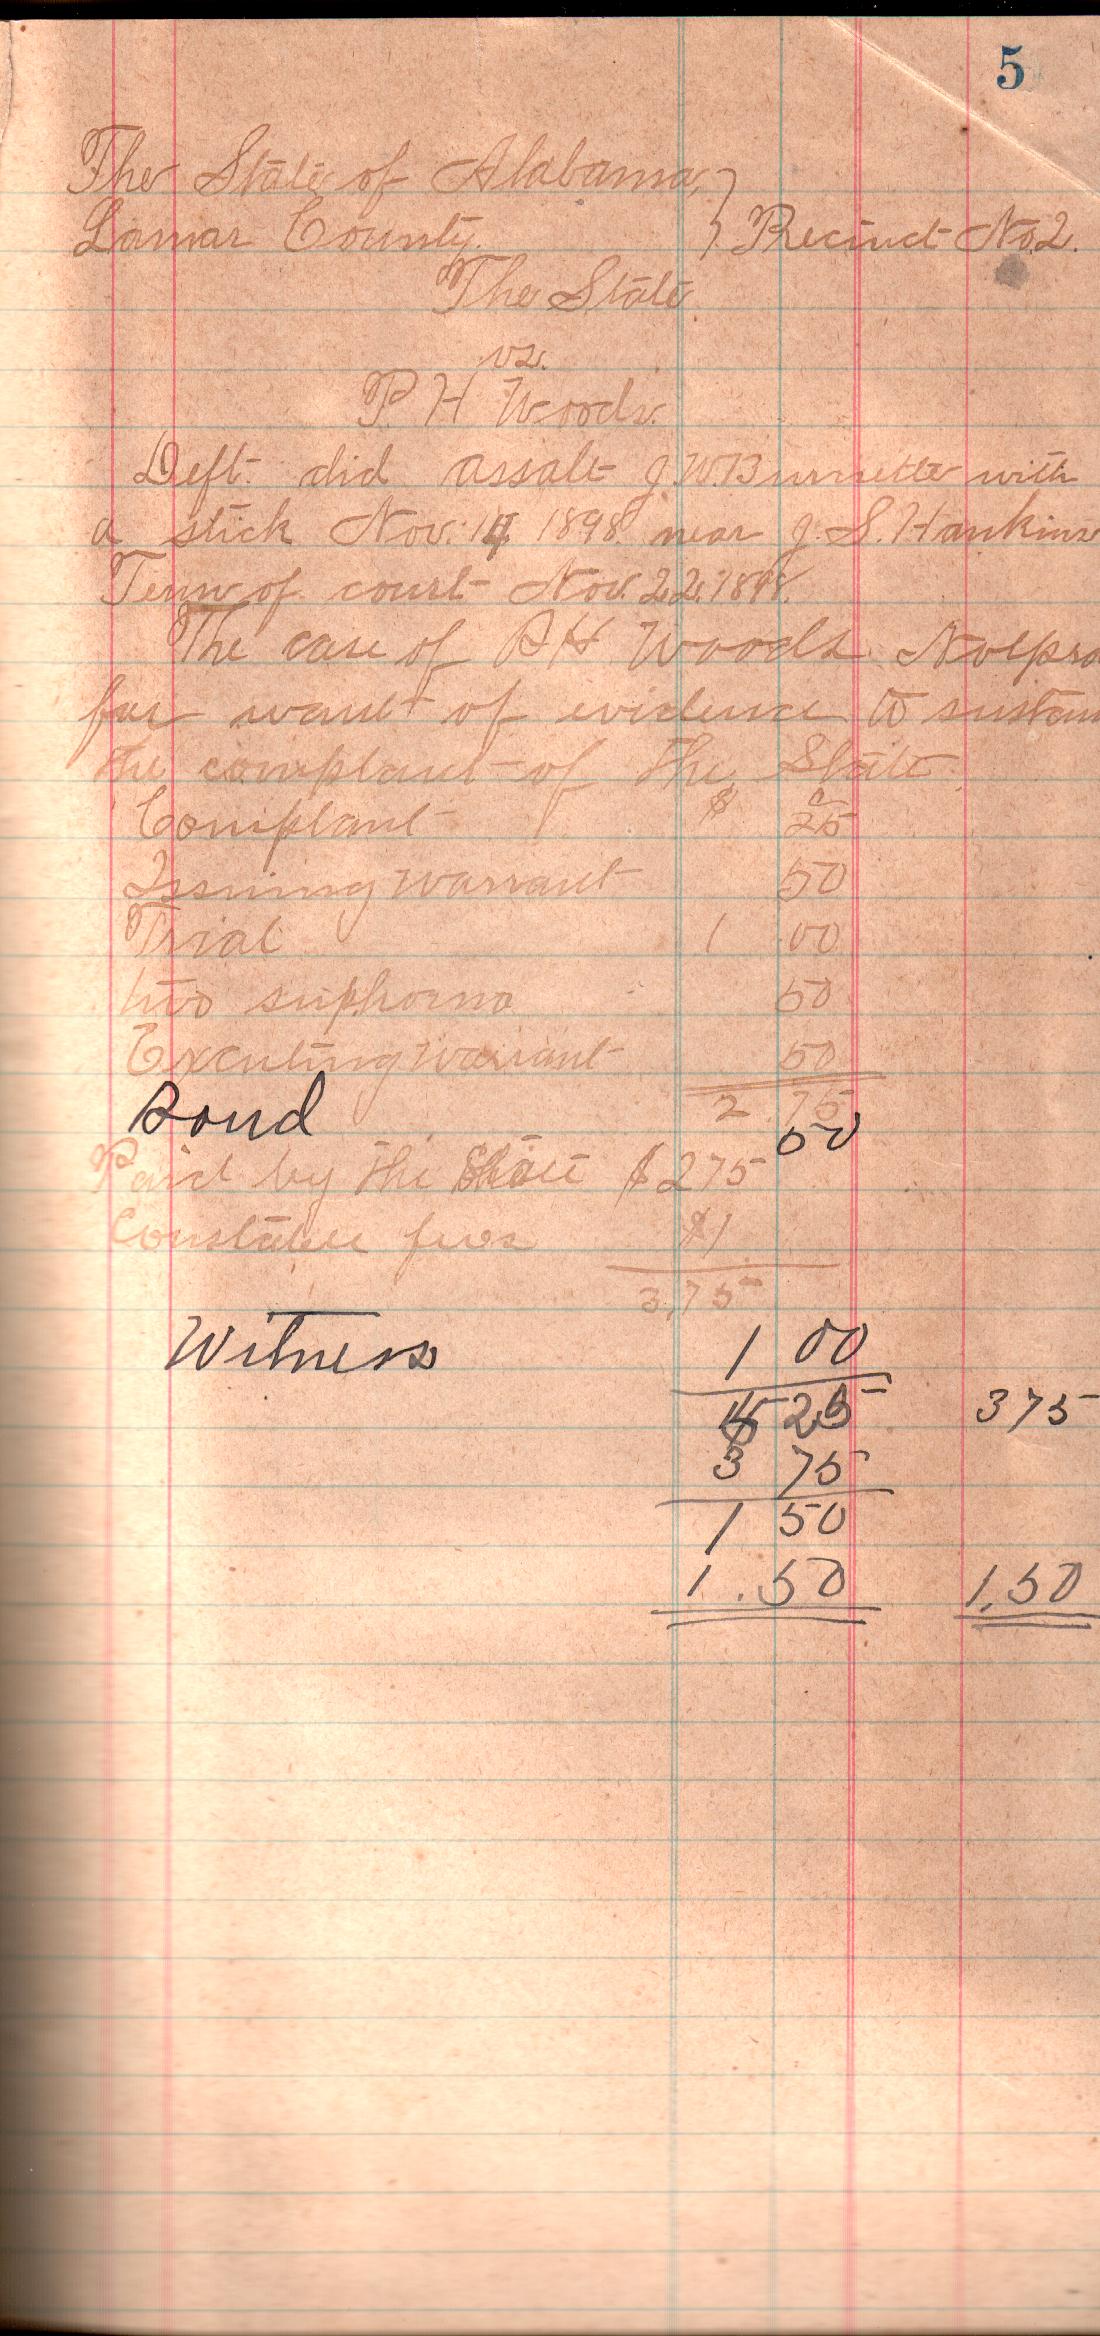 5
The State of Alabama, }
Lamar County. } Precinct No 2.
The State
vs.
P. H Woods.
Deft. did assalt J. W. Burnette with
a stick Nov. 14 1898. near J. S. Hankins
Term of court Nov. 22. 1898.
The case of P H Woods Nolpro
for want of evidence to sustain
the complant of the State.
Complant $ 25
Issuing warrant 50
Trial 1 00
two suphoena 50
Executing warrant 50
2 75
Bond 50
Paid by the State $275
Constable fees $1
3.75
Witness 1 00
5 25 375
3 75
1 50
1.50 1.50